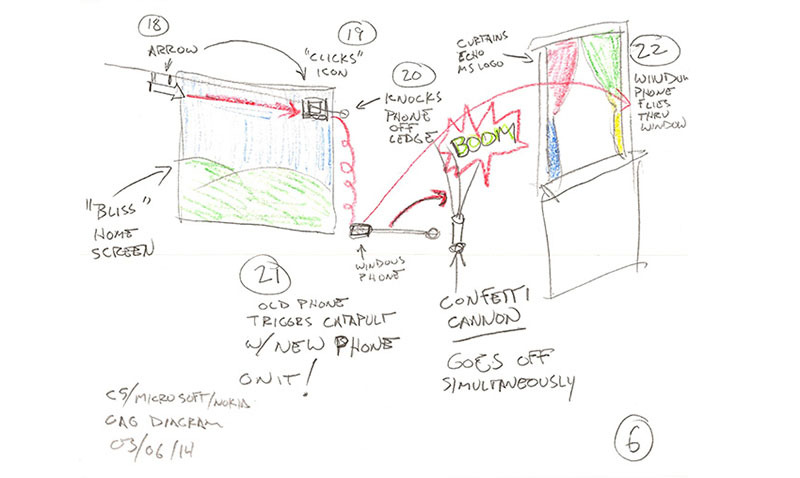 18
ARROW
19
"CLICKS"
ICON
20
KNOCKS
PHONE
OFF
LEDGE
BOOM
CURTAINS
ECHO
MS LOGO
22
WINDOW
PHONE
FLIES
THRU
WINDOW
"BLISS"
HOME
SCREEN
WINDOWS
PHONE
21
OLD PHONE
TRIGGRS CATAPULT
W/ NEW PHONE
ON IT!
CONFETTI
CANNON
GOES OFF
SIMULTANEOUSLY
CS/MICROSOFT/NOKIA
GAG DIAGRAM
03/06/14
6